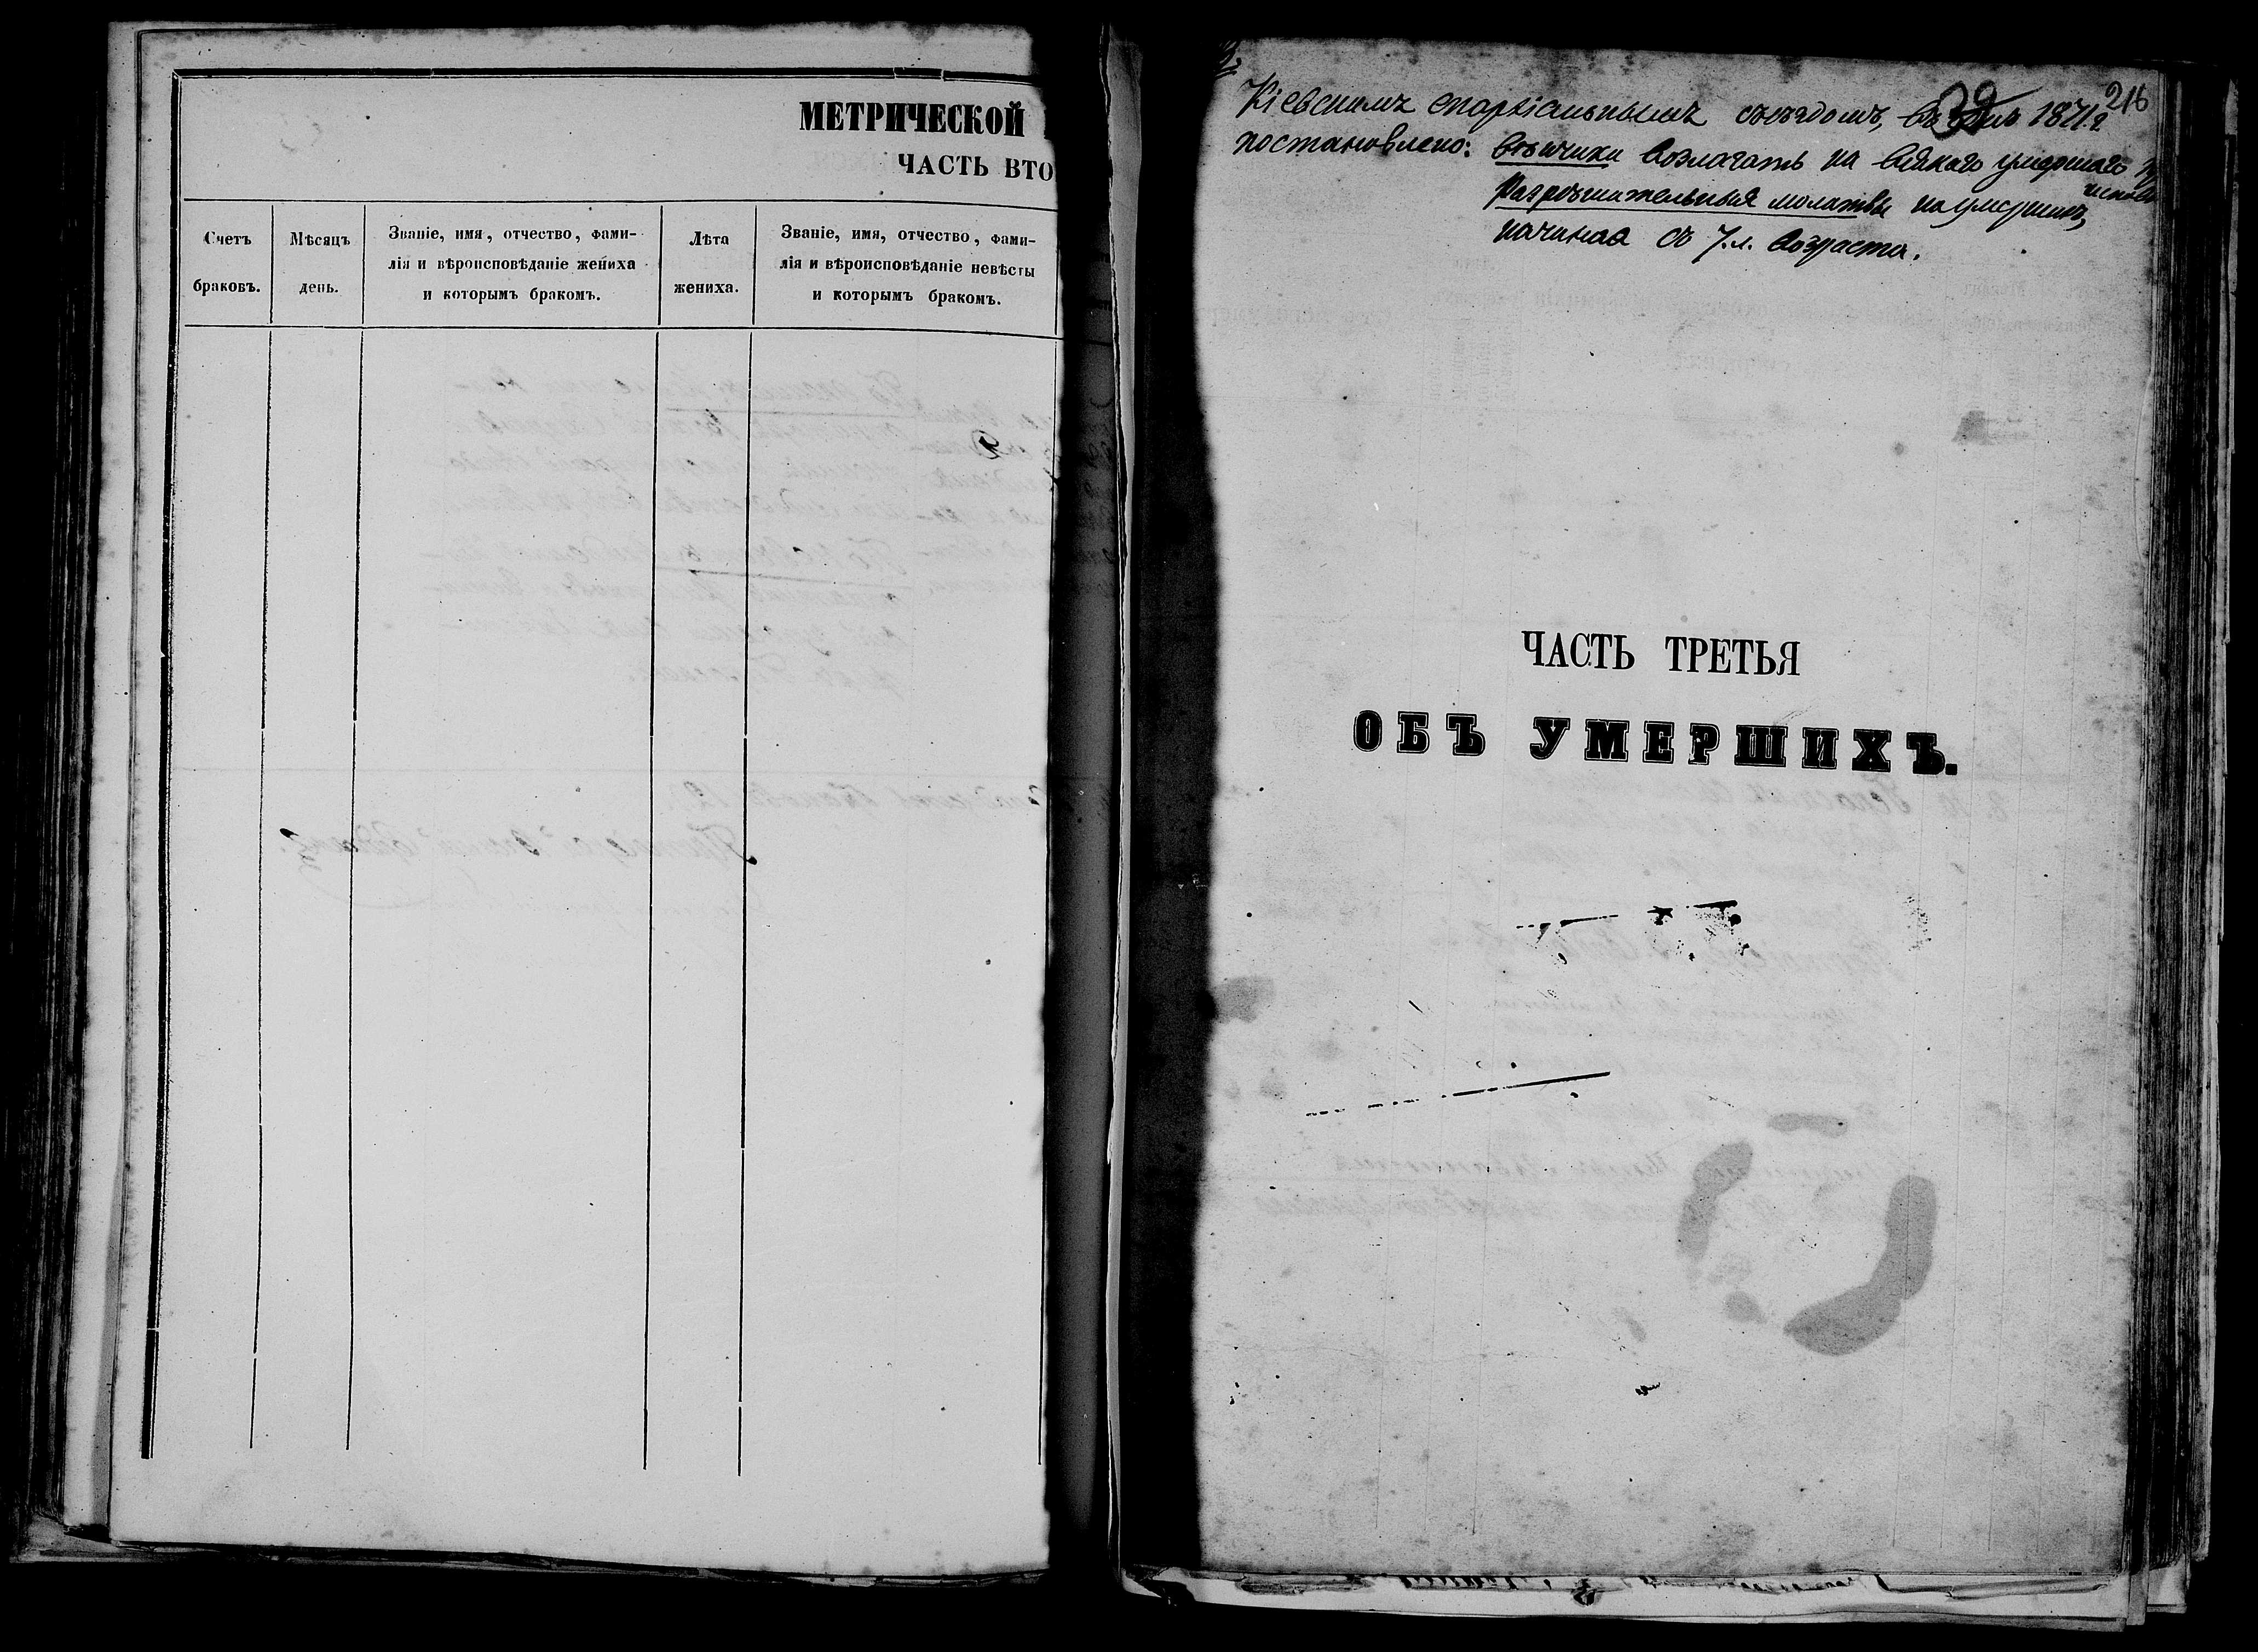 МЕТРИЧЕСКОЙ
ЧАСТЬ ВТО
Счетъ браковъ.
Мѣсяцъ день.
Званіе, имя, отчество, фами-
лія и вѣроисповѣданіе жениха
и которымъ бракомъ.
Лѣта жениха.
Званіе, имя, отчество, фами-
лія и вѣроисповѣданіе невѣсты
и которымъ бракомъ.
216
32
Кіевскимъ епархіальнымъ съѣздомъ, въ 1871 г
постановлено: вѣнчики возлагать на всякаго умершаго
Разрѣшительныя молитвы на умершихъ,
начиная съ 7.л. возраста.
ЧАСТЬ ТРЕТЬЯ
ОБЪ УМЕРШИХЪ.